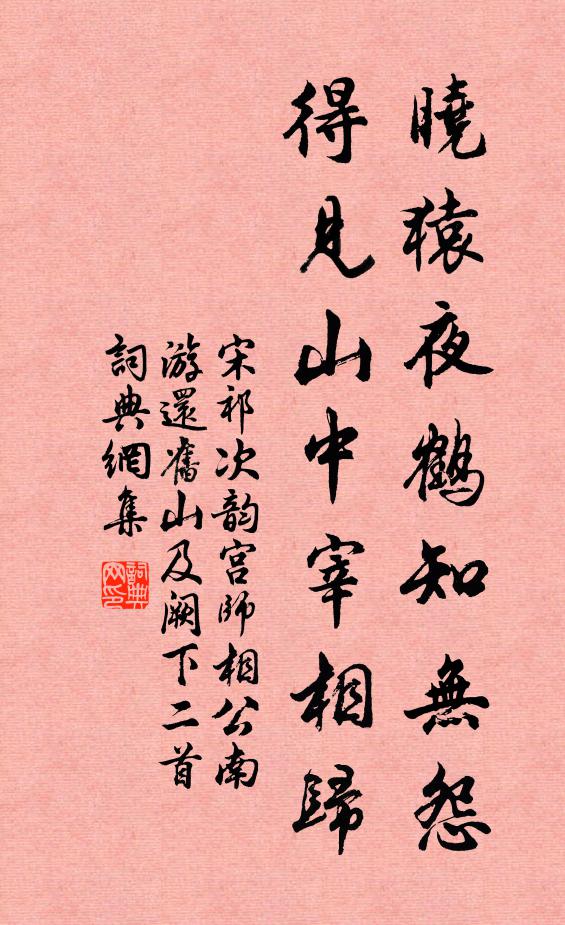 曉猿夜鶴知無怨
得見山中宰相歸
宋祁次韵宫師相公南
游還舊山及闕下二首
詞典網集
詞典
网印